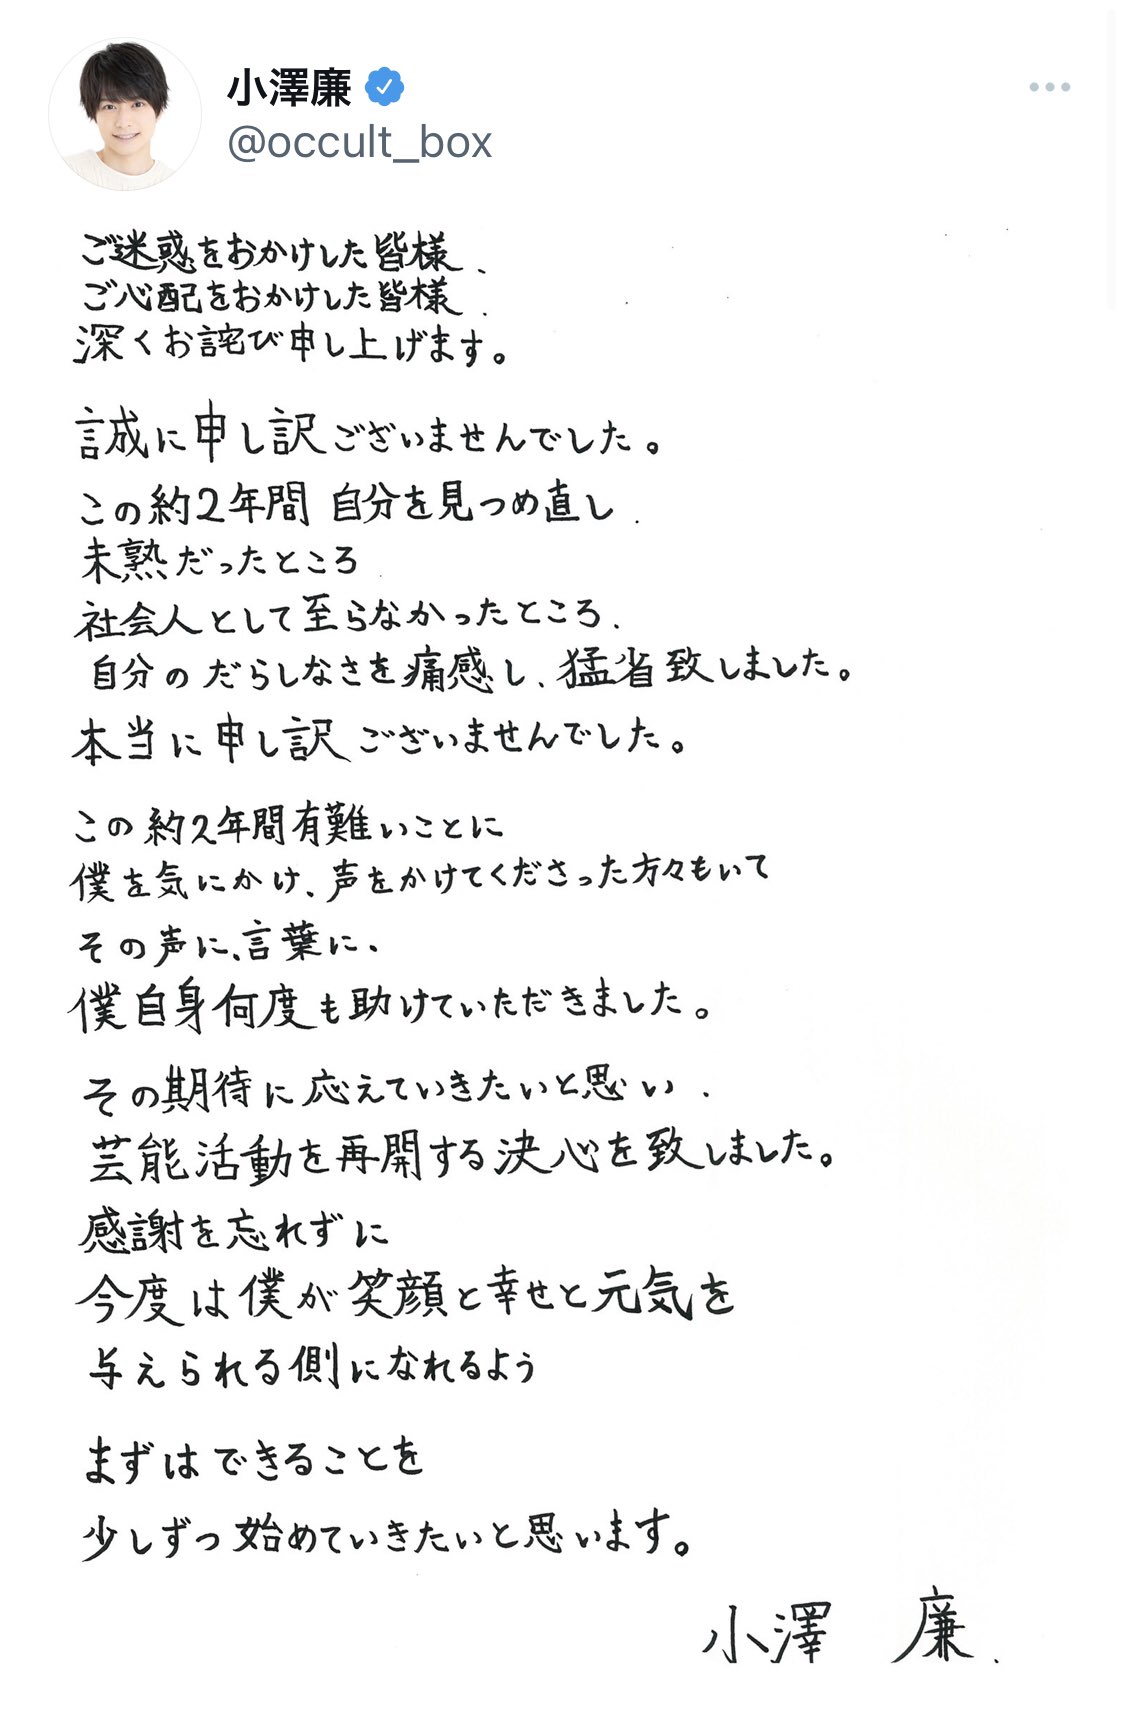 小澤廉
@occult_box
ご迷惑をおかけした皆様、
ご心配をおかけした皆様、
深くお詫び申し上げます。
誠に申し訳ございませんでした。
この約2年間 自分を見つめ直し、
未熟だったところ、
社会人として至らなかったところ、
自分のだらしなさを痛感し、猛省致しました。
本当に申し訳ございませんでした。
この約2年間有難いことに
僕を気にかけ、声をかけてくださった方々もいて
その声に、言葉に、
僕自身何度も助けていただきました。
その期待に応えていきたいと思い、
芸能活動を再開する決心を致しました。
感謝を忘れずに
今度は僕が笑顔と幸せと元気を
与えられる側になれるよう
まずはできることを
少しずつ始めていきたいと思います。
小澤 廉.